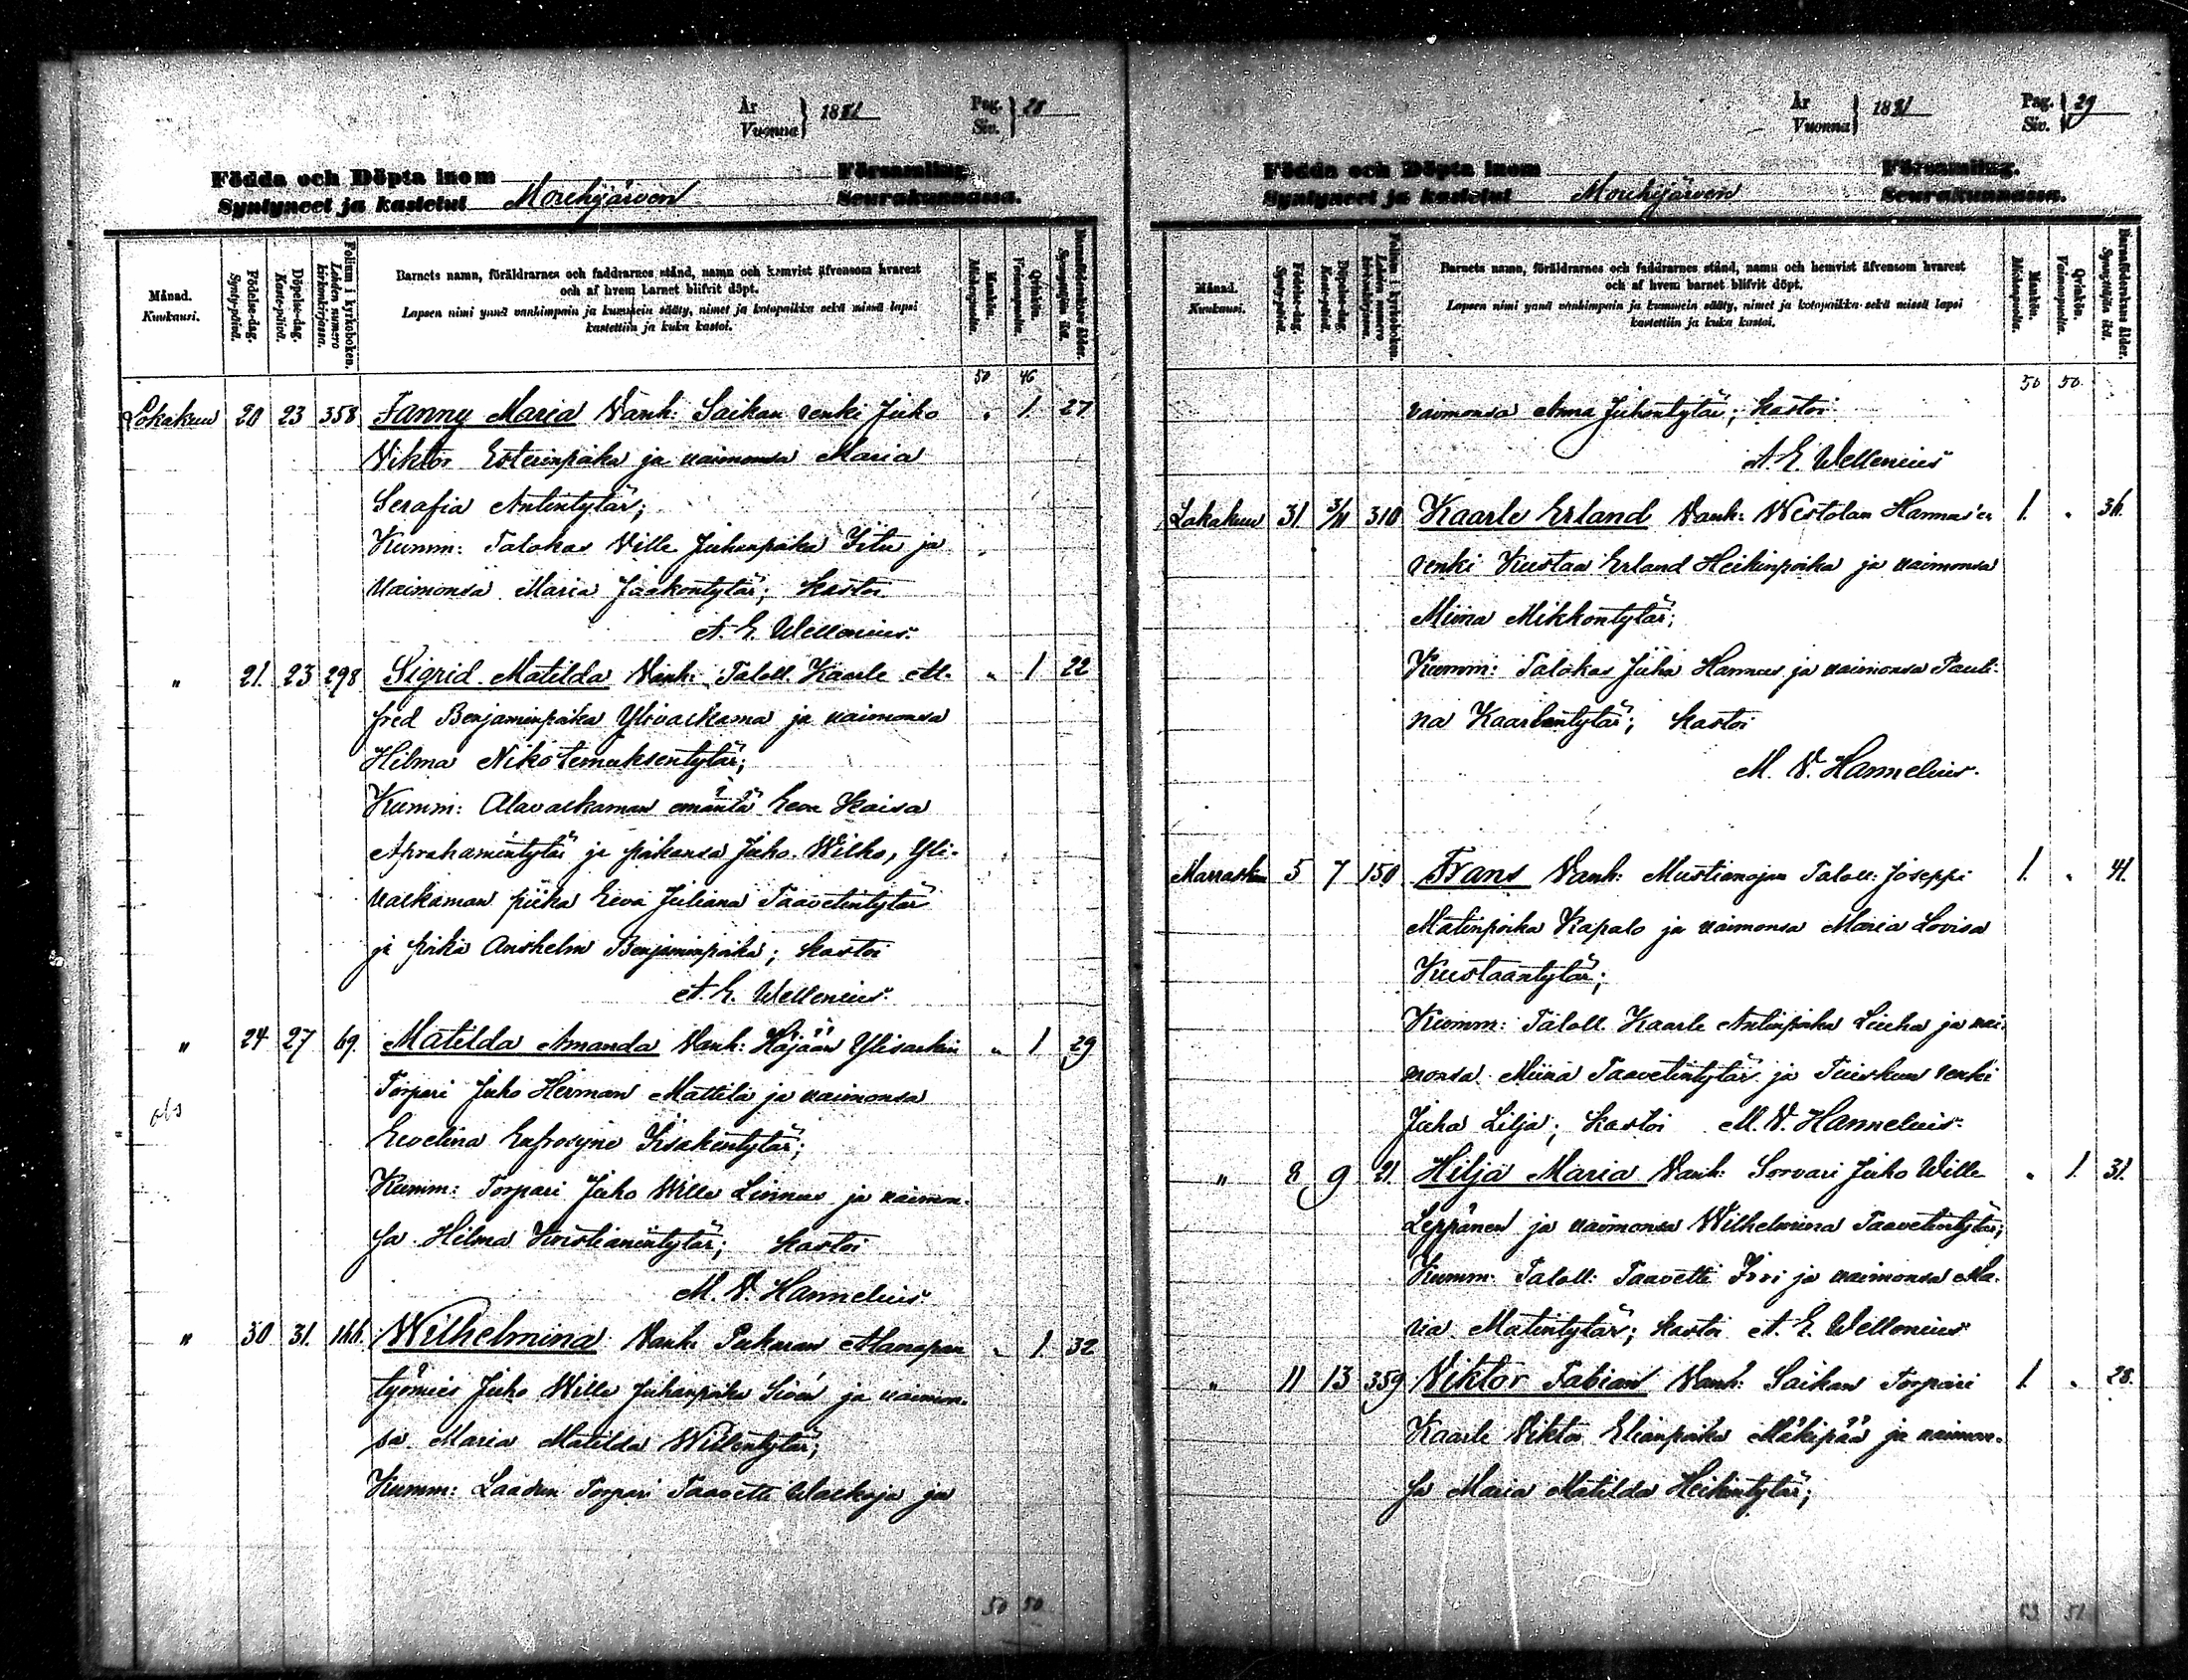 År
Vuonna } 1881 Pag.
Siv. } 28
Födda och Döpta inom Församling.
Syntyneet ja kastetut Mouhijärven Seurakunnassa.
Månad.
Kuukausi.
Födelse-dag.
Synty-päivä.
Döpelse-dag.
Kaste-päivä.
Folium i kyrkoboken.
Lehden numero kirkonkirjassa.
Barnets namn, föräldrarnes och faddrarnes stånd, namn och hemvist äfvensom hvarest
och af hvem barnet blifvit döpt.
Lapsen nimi ynnä vanhimpain ja kummein sääty, nimet ja kotopaikka sekä missä lapsi
kastettiin ja kuka kastoi.
Mankön.
Miehenpuolta.
Qvinkön.
Vaimonpuolta.
Barnaföderskans ålder.
Synnyttäjän ikä.
50 46
Lokakuu 20 23 358 Fanny Maria Vanh: Saikan renki Juho " 1 27
Viktor Esterinpoika ja vaimonsa Maria
Serafia Antintytär;
Kumm: Talokas Ville Juhanpoika Iitu ja
vaimonsa Maria Jaakontytär; kastoi
A. E. Wellenius.
" 21. 23 298 Sigrid Matilda Vanh: Taloll. Kaarle Al- " 1 22
fred Benjaminpoika Ylivalkama ja vaimonsa
Hilma Nikotemuksentytär;
Kumm: Alavalkaman emäntä Eeva Kaisa
Aprahamintytär ja poikansa Juho Wilho, Yli-
valkaman piika Eeva Juliana Taavetintytär
ja poika Anshelm Benjaminpoika; kastoi
A. E. Wellenius.
" 24 27 69. Matilda Amanda Vanh: Häijään Ylisarkin " 1 29
obs
Torpari Juho Herman Mattila ja vaimonsa
Eevelina Eufrosyne Iisakintytär;
Kumm: Torpari Juho Wille Linnus ja vaimon-
sa Hilma Kristianintytär; kastoi
M. V. Hannelius.
" 30 31. 166. Wilhelmina Vanh: Pukaran Alanapan " 1 32
työmies Juho Wille Juhanpoika ja vaimon-
sa Maria Matilda Willentytär;
Kumm: Laadun Torpari Taavetti Walkoja ja
50 50
År
Vuonna } 1881 Pag.
Siv. } 29
Födda och Döpta inom Församling.
Syntyneet ja kastetut Mouhijärven Seurakunnassa.
Månad.
Kuukausi.
Födelse-dag.
Synty-päivä.
Döpelse-dag.
Kaste-päivä.
Folium i kyrkoboken.
Lehden numero kirkonkirjassa.
Barnets namn, föräldrarnes och faddrarnes stånd, namn och hemvist äfvensom hvarest
och af hvem barnet blifvit döpt.
Lapsen nimi ynnä vanhimpain ja kummein sääty, nimet ja kotopaikka sekä missä lapsi
kastettiin ja kuka kastoi.
Mankön.
Miehenpuolta.
Qvinkön.
Vaimonpuolta.
Barnaföderskans ålder.
Synnyttäjän ikä.
50 50.
vaimonsa Anna Juhontytär; kastoi
A E. Wellenius
Lokakuu 31. 3/11 310 Kaarle Erland Vanh: Westolan Hannus'en 1. " 36.
renki Kustaa Erland Heikinpoika ja vaimonsa
Miina Mikkontytär;
Kumm: Talokas Juha Hannus ja vaimonsa Pauli-
na Kaarlentytär; kastoi
M. V. Hannelius.
Marraskuu 5 7 150 Frans Vanh: Mustianojan Taloll: Joseppi 1. " 41.
Matinpoika Kapalo ja vaimonsa Maria Lovisa
Kustaantytär;
Kumm: Taloll. Kaarle Antinpoika Liuha ja vai-
monsa Miina Taavetintytär ja Tuiskun renki
Juha Lilja; kastoi M. V. Hannelius.
" 8 9 21. Hilja Maria Vanh: Sorvari Juho Wille " 1. 31.
Leppänen ja vaimonsa Wilhelmiina Taavetintytär;
Kumm: Taloll: Taavetti Isri ja vaimonsa Ma-
ria Matintytär; kastoi A. E. Wellenius
" 11 13 359 Viktor Fabian Vanh: Saikan Torpari 1. " 28.
Kaarle Viktor Elianpoika Mäkipää ja vaimon-
sa Maria Matilda Heikintytär;
53 51